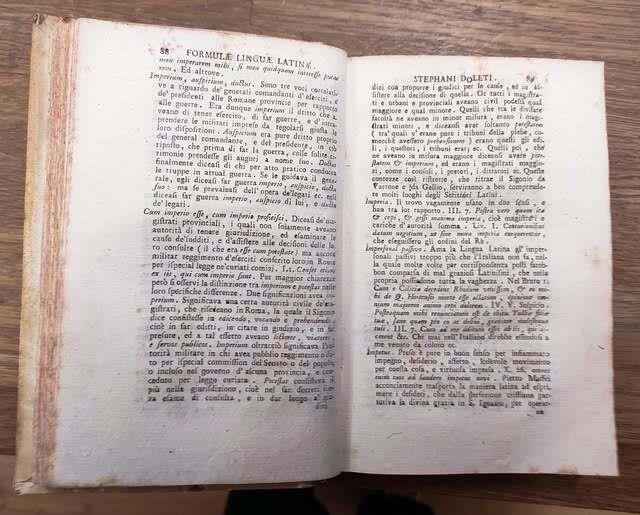 88 FORMULÆ LINGUÆ LATINÆ.
meo imperarem mihi, si mea quidquam interesse puta-
rem. Ed altrove.
Imperium, auspicium, ductus. Sono tre voci correlati-
ve a riguardo de' generali comandanti d'eserciti, e
de' presidenti alle Romane provincie per rapporto
alle guerre. Era dunque imperium il dritto che a-
vean di tener esercito, di far guerre, e d'intra-
prendere le militari imprese da regolarsi giusta le
loro disposizioni. Auspicium era pure dritto proprio
del general comandante, e del presidente, in ciò
riposto, che pria di far la guerra, colle solite ci-
rimonie prendesse gli augurj a nome suo. Ductus
finalmente diceasi di chi per atto pratico conduceva
le truppe in attual guerra. Se le guidava il gene-
rale, egli diceasi far guerra imperio, auspicio, ductu
suo: ma se prevaleasi dell'opera de' legati ec. egli
diceasi far guerra imperio, auspicio di lui, e ductu
de' legati.
Cum imperio esse, cum imperio proficisci. Diceasi de' ma-
gistrati provinciali, i quali non solamente aveano
autorità di tenere giurisdizione, ed esaminare le
cause de' sudditi, e d'assistere alle decisioni delle lo-
ro consulte (il che era esse cum potestate) ma ancora
militar reggimento d'eserciti conferito loro in Roma
per ispecial legge ne' curiati comizj. I.1. Censet
iis, qui cum imperio sunt. Per maggior chiarezza
però si osservi la distinzione tra imperium e potestas nelle
loro specifiche differenze. Due significazioni avea im-
perium. Significava una certa autorità civile de' ma-
gistrati, che riseveano in Roma, la quale il Sigonio
dice consistesse in edicendo, vocando e prehendendo:
cioè in far editti, in citare in giudizio, e in far
presure, ed a tal effetto aveano lictores, viatores,
e servos publicos. Imperium oltracciò significava l'au-
torità militare in chi avea pubblico reggimento o
per special commission del Senato o del popolo,
o incluso nel governo d'alcuna provincia, e con-
ceduto per legge curiata. Potestas consisteva il
più nella giurisdizione, cioè nel far decreti sen-
za esame di consulta, e in dar luogo a giu-
dizi
STEPHANI DOLETI. 89
dizi con proporre i giudici per le cause, ed in as-
sistere alla decisione di esse. Or tutti i magistra-
ti e urbani e provinciali aveano civil podestà qual
maggiore e qual minore. Quelli che tra le divisate
facoltà ne aveano in minor misura, erano i magi-
strati minori, e diceansi aver soltanto potestatem
(tra' quali v'erano pure i tribuni della plebe,
comechè avessero prehensionem) erano quelli gli edi-
li, i questori, i tribuni erarj ec. Quelli poi, che
ne aveano in misura maggiore diceansi avere pote-
statem & imperium, ed erano i magistrati maggio-
ri, come i consoli, i pretori, i dittatori ec. Queste
contezze così ristrette, che ritrae il Sigonio da
Varrone e da Gellio, serviranno a ben comprende-
re molti luoghi degli Scrittori Latini.
Imperia. Il trovo vagamente usato in due sensi, e
han tra lor rapporto. III. 7. Postea vero quam ita
& cepi, & gessi maxima imperia, cioè magistrati e
cariche d'autorità somma. Liv. I. Centurionibus
datum negotium, ut sine mora imperia exequerentur,
che eseguissero gli ordini del Re.
Impersonali passivi. Ama la Lingua Latina gl' imper-
sonali passivi troppo più che l'Italiana non fa,
la quale molte volte per corrispondenza posti fan-
no comparsa di mal graziosi Latinismi, che nella
propria possedono tutta la vaghezza. Nel Bruto 1.
Cum e Cilicia decedens Rhodum venissem, & eo mi-
hi de Q. Hortensii morte esset allatum, opinione om-
nium majorem animo cepi dolorem. IV. 5. Sulpicio.
Posteaquam mihi renunciatum est de obitu Tulliæ filiæ
tuæ, sane quam pro eo ac debui, graviter molesteque
tuli. III. 7. Cum ad me aditum esset ab iis, qui di-
cerent &c. Chi mai nell'Italiano direbbe essendosi a
me venuto da coloro ec.
Impetus. Preso è pure in buon senso per infiammato
impegno, desiderio, affetto, lodevole movimento
per questa cosa, e virtuosa impresa. X. 26.
cum tuus ad laudem impetus novi. Pietro Maffei
acconciamente trasporta la maniera latina ad espri-
mere i desiderj, che dalla perfezione cristiana par-
turiva la divina grazia in S. Ignazio, per operar-
ne